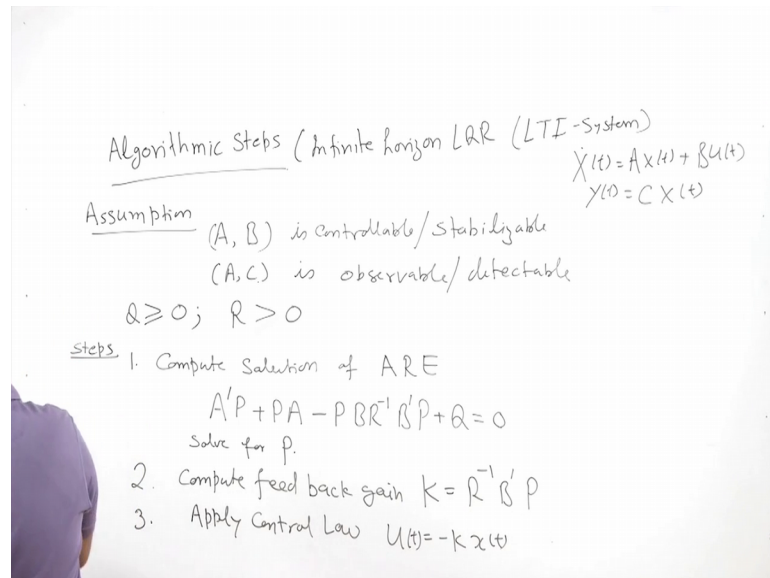 Algorithmic Steps (Infinite horizon LQR (LTI-System)
Ẋ(t) = AX(t) + BU(t)
Y(t) = CX(t)
Assumption
(A, B) is Controllable/Stabilizable
(A, C) is observable/detectable
Q ⩾ 0; R > 0
Steps
1. Compute Salution of ARE
A'P + PA - PBR⁻¹B'P + Q = 0
Solve for P.
2. Compute feed back gain K = R⁻¹B'P
3. Apply Control Law U(t) = -Kx(t)